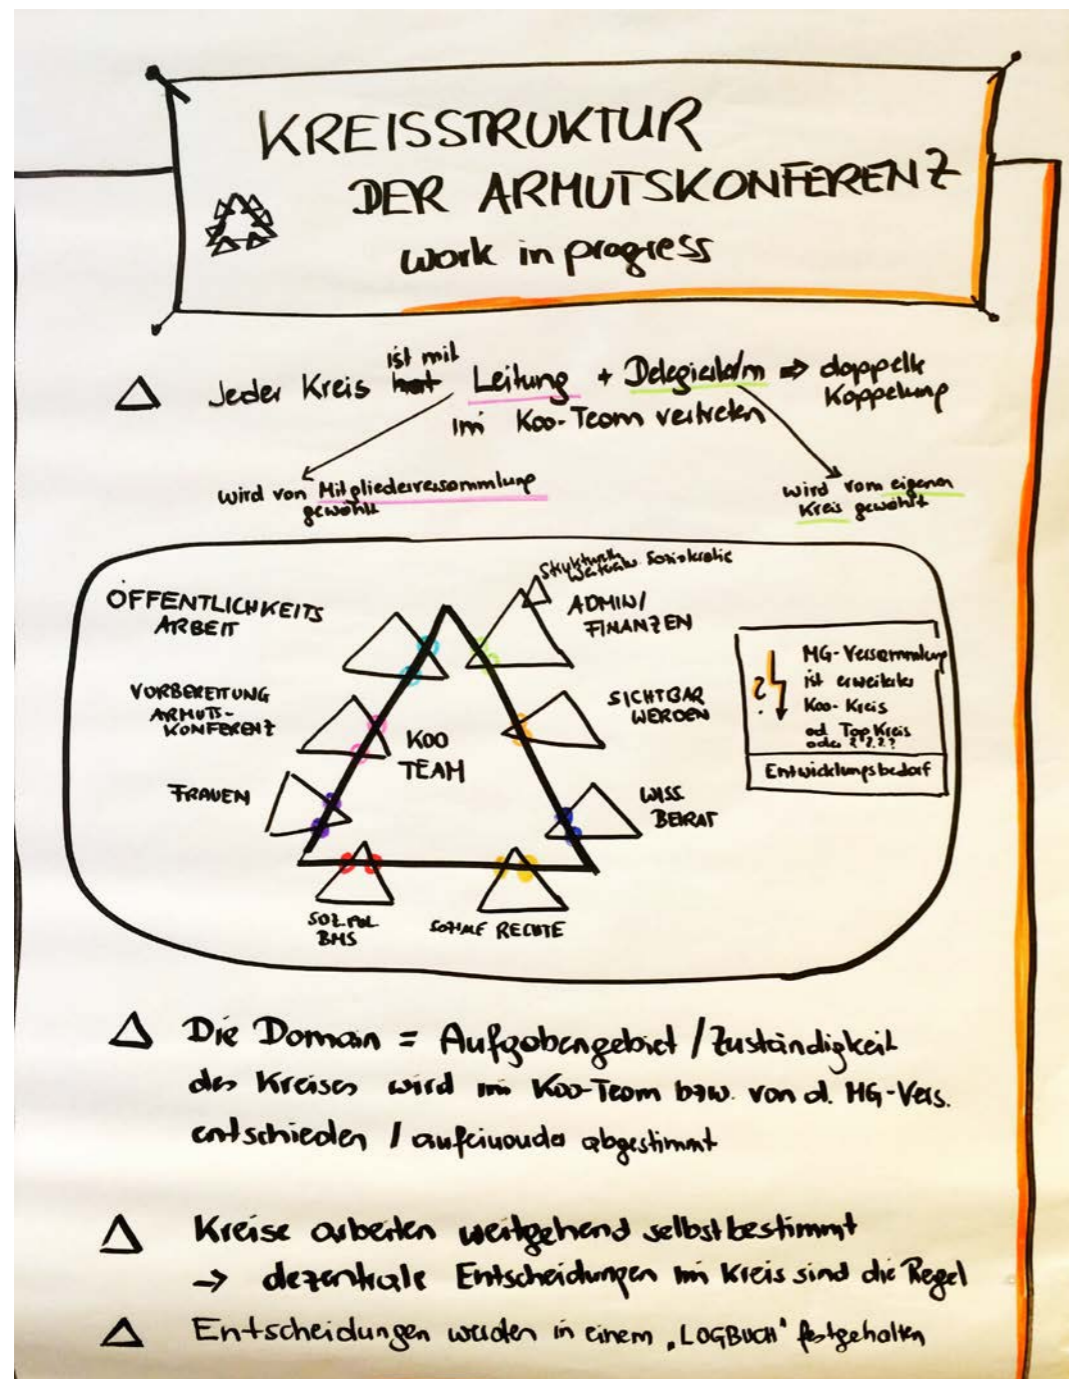 KREISSTRUKTUR
DER ARMUTSKONFERENZ
work in progress
ist mit
Jeder Kreis hat Leitung + Delegierte/m ⇒ doppelte
im Koo-Team vertreten Koppelung
wird von Mitgliederversammlung
gewählt
wird vom eigenen
Kreis gewählt
ÖFFENTLICHKEITS
ARBEIT
Soziokratie
ADMIN/
FINANZEN
VORBEREITUNG
ARMUTS-
KONFERENZ
SICHTBAR
WERDEN
FRAUEN
KOO
TEAM
WISS.
BEIRAT
SOZ.POL
BMS
SOZIALE RECHTE
MG-Versammlung
ist erweiterter
Koo-Kreis
od. Top Kreis
oder ????
?
Entwicklungsbedarf
Die Domain = Aufgabengebiet / Zuständigkeit
des Kreises wird im Koo-Team bzw. von d. MG-Vers.
entschieden / aufeinander abgestimmt
Kreise arbeiten weitgehend selbstbestimmt
→ dezentrale Entscheidungen im Kreis sind die Regel
Entscheidungen werden in einem „LOGBUCH" festgehalten